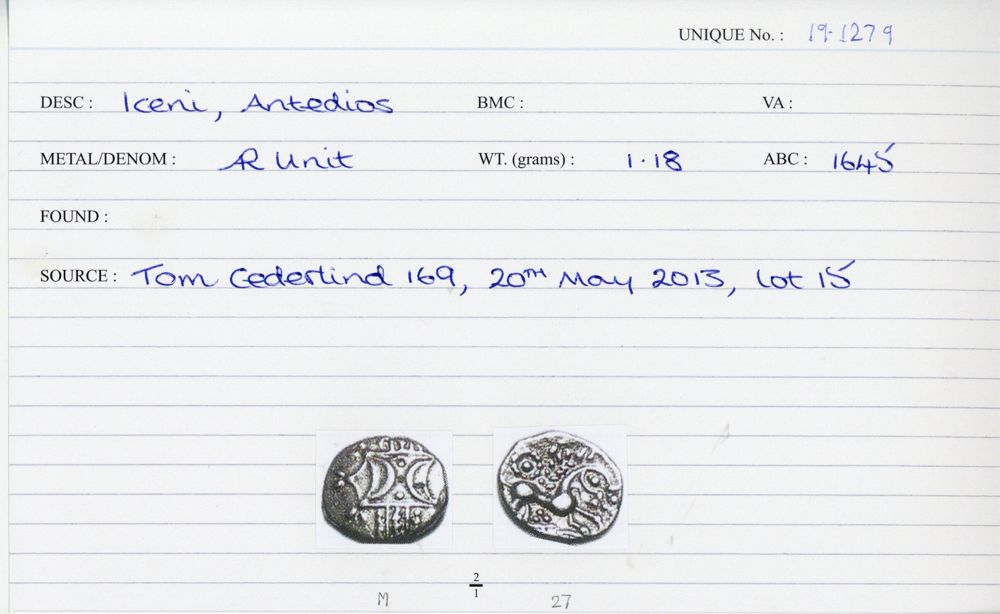 UNIQUE No. : 19-1279
DESC : Iceni, Antedios BMC : VA :
METAL/DENOM : AR Unit WT. (grams) : 1.18 ABC : 1645
FOUND :
SOURCE : Tom Cederlind 169, 20TH May 2013, lot 15
2
1
M 27